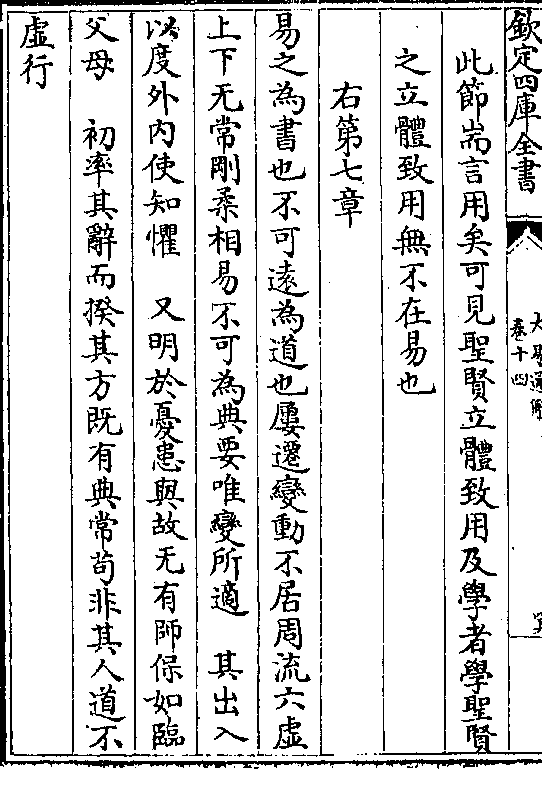 欽定四庫全書
大易通解
卷十四
此節耑言用矣可見聖賢立體致用及學者學聖賢
之立體致用無不在易也
右第七章
易之為書也不可遠為道也屢遷變動不居周流六虛
上下无常剛柔相易不可為典要唯變所適　其出入
以度外内使知懼　又明於憂患與故无有師保如臨
父母　初率其辭而揆其方既有典常苟非其人道不
虛行